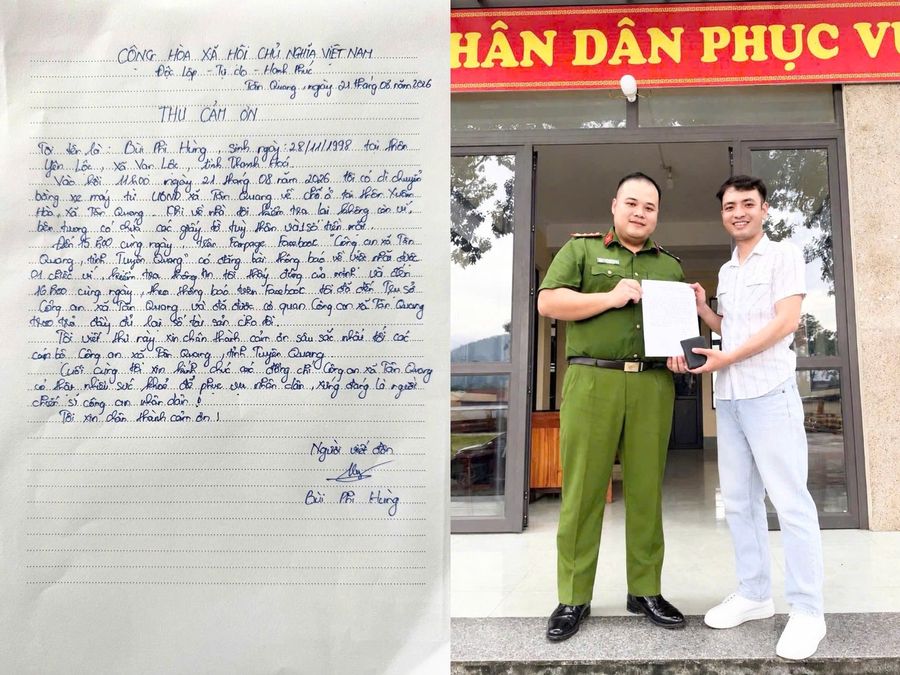 CỘNG HÒA XÃ HỘI CHỦ NGHĨA VIỆT NAM
Độc lập - Tự do - Hạnh Phúc
Tân Quang, ngày 21 tháng 08 năm 2026
THƯ CẢM ƠN
Tôi tên là: Bùi Phi Hùng, sinh ngày: 28/11/1998 tại thôn
Yên Lộc, xã Vạn Lộc, tỉnh Thanh Hoá.
Vào hồi 11h00 ngày 21 tháng 08 năm 2026 tôi có di chuyển
bằng xe máy từ UBND xã Tân Quang về chỗ ở tại thôn Xuân
Hoà, xã Tân Quang. Khi về nhà tôi kiểm tra lại không còn ví,
bên trong có chứa các giấy tờ tuỳ thân và 1 số tiền mặt.
Đến 15h00 cùng ngày, trên Fanpage Facebook "Công an xã Tân
Quang, tỉnh Tuyên Quang" có đăng bài thông báo về việc nhặt được
01 chiếc ví, kiểm tra thông tin tôi thấy đúng của mình và đến
16h00 cùng ngày, theo thông báo trên Facebook tôi đã đến Trụ sở
Công an xã Tân Quang và đã được cơ quan Công an xã Tân Quang
trao trả đầy đủ lại số tài sản cho tôi.
Tôi viết thư này xin chân thành cảm ơn sâu sắc nhất tới các
cán bộ Công an xã Tân Quang, tỉnh Tuyên Quang.
Cuối cùng tôi xin kính chúc các đồng chí Công an xã Tân Quang
có thật nhiều sức khoẻ để phục vụ nhân dân, xứng đáng là người
chiến sĩ công an nhân dân!
Tôi xin chân thành cảm ơn!
Người viết đơn
Bùi Phi Hùng
HÂN DÂN PHỤC VỤ